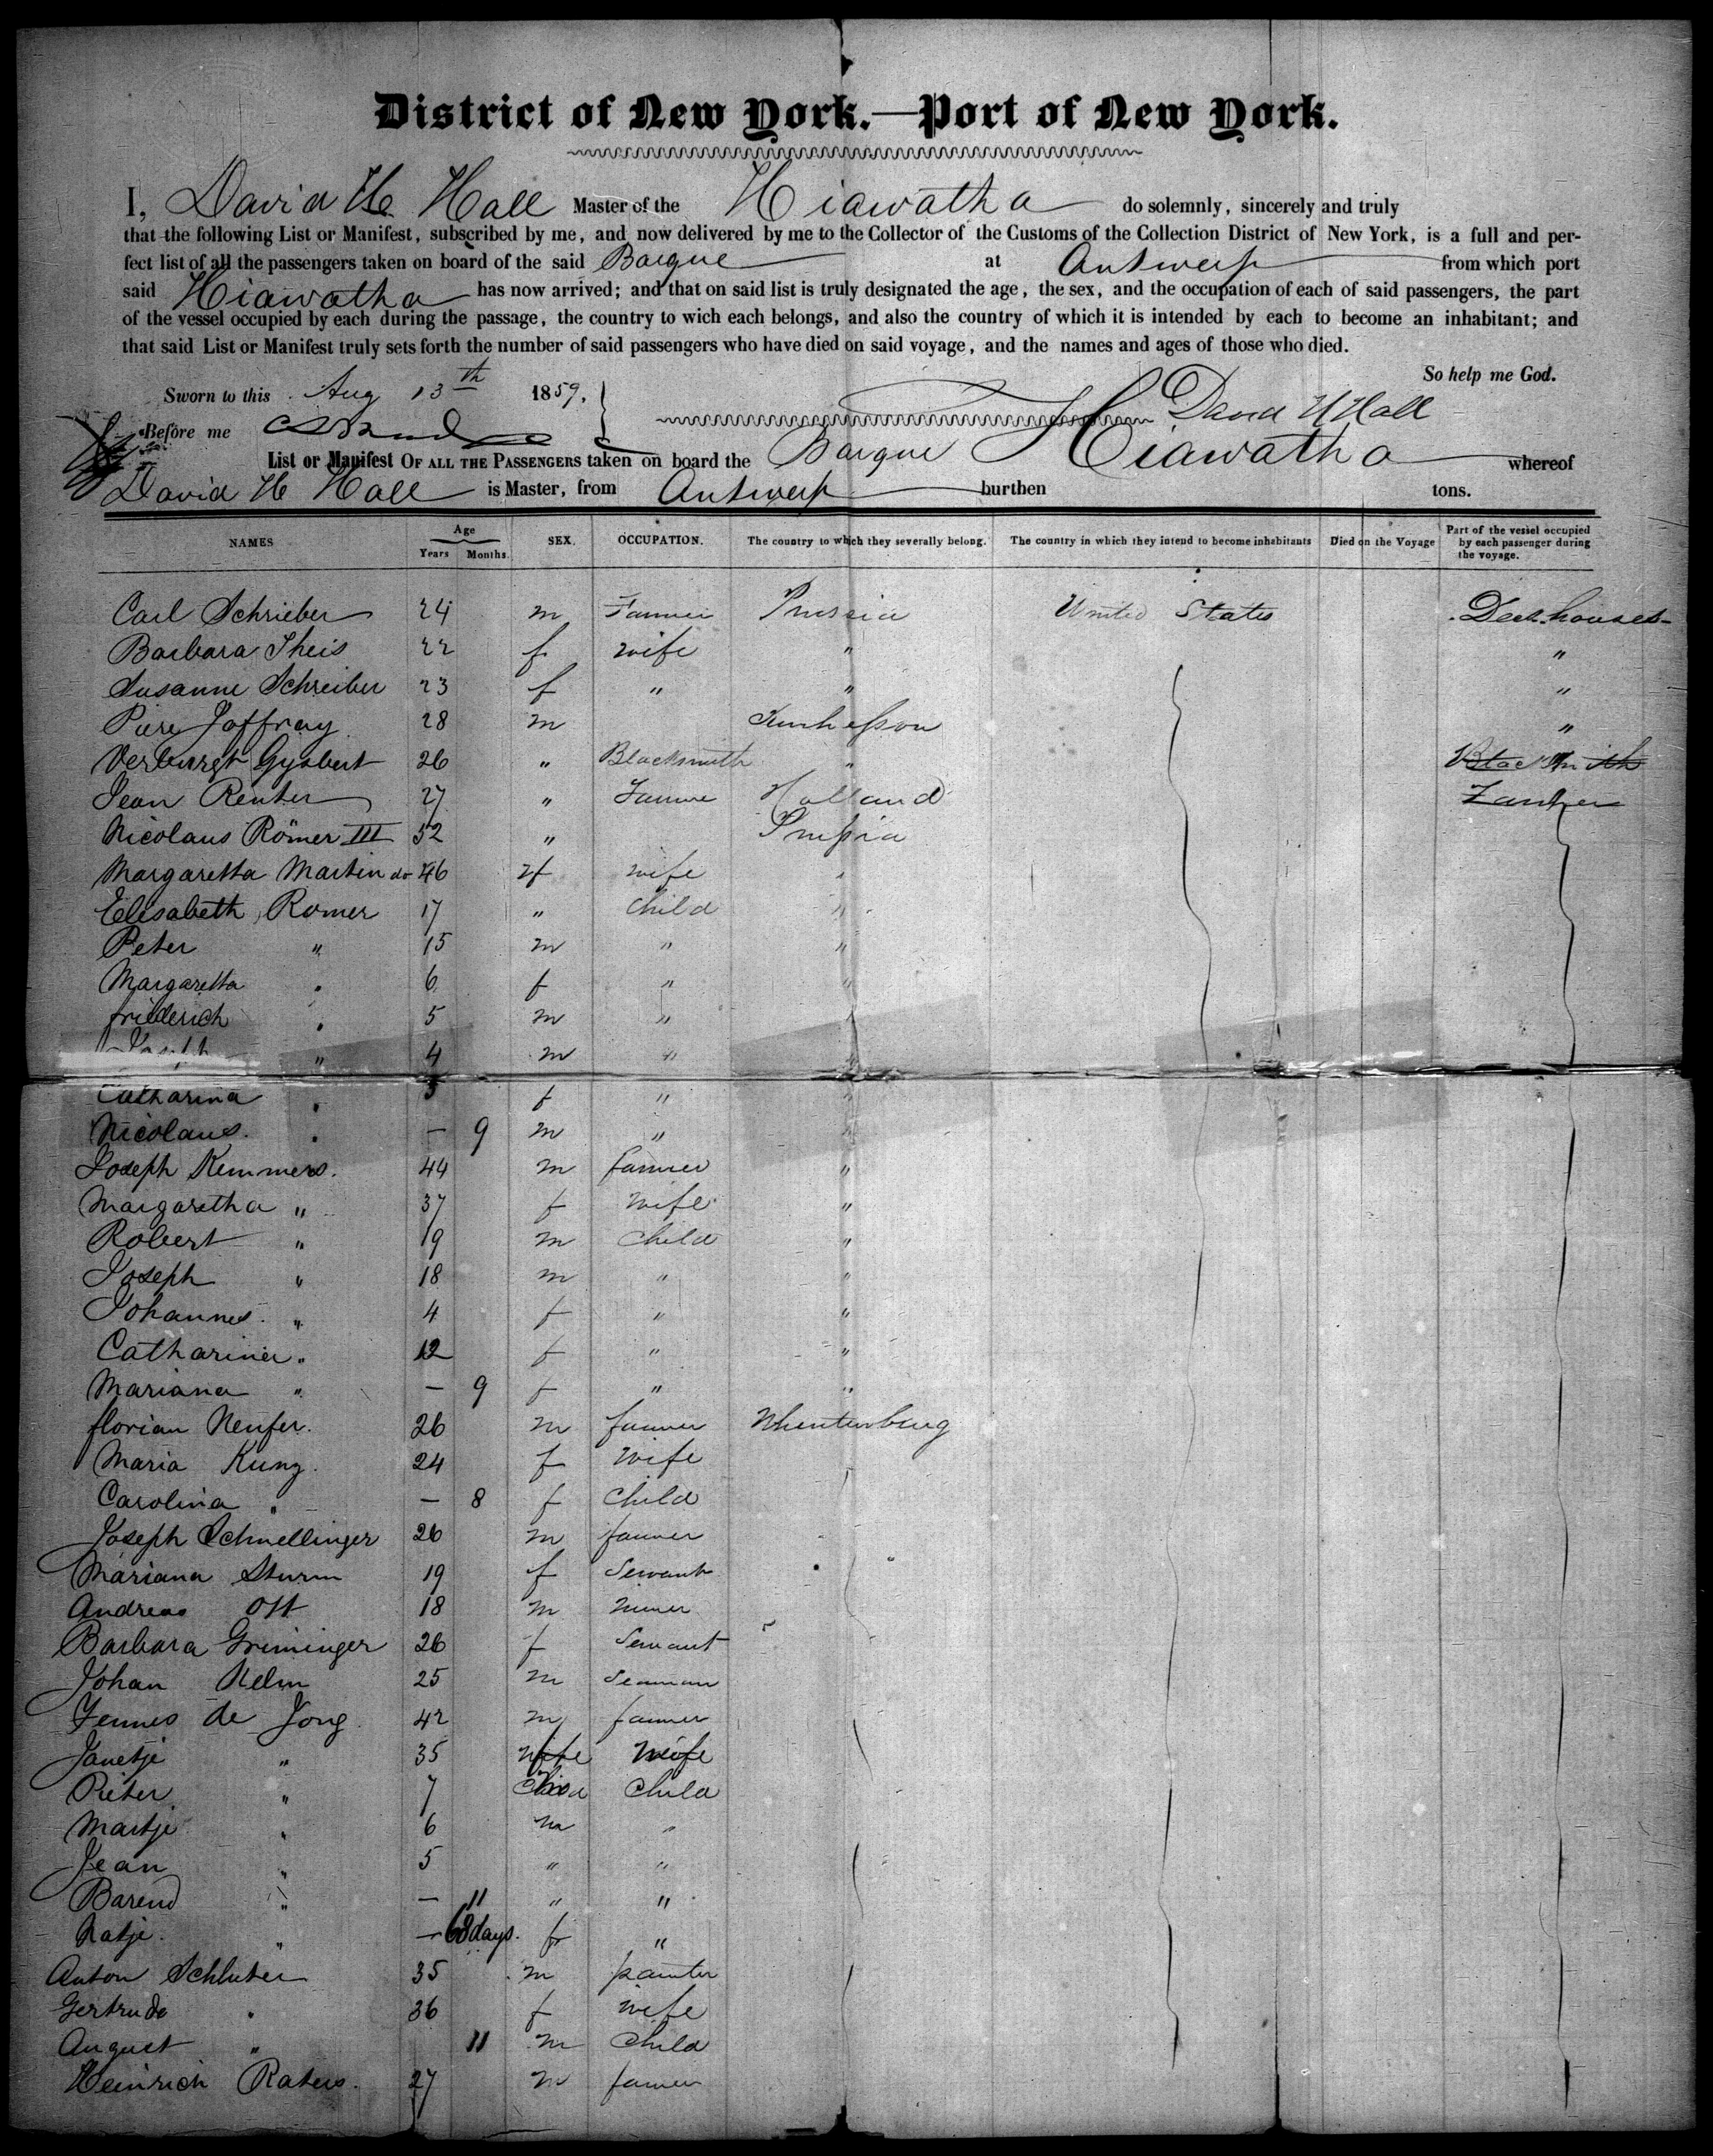 District of New York.—Port of New York.
I, David H Hall Master of the Hiawatha do solemnly, sincerely and truly
that the following List or Manifest, subscribed by me, and now delivered by me to the Collector of the Customs of the Collection District of New York, is a full and per-
fect list of all the passengers taken on board of the said Barque at Antwerp from which port
said Hiawatha has now arrived; and that on said list is truly designated the age, the sex, and the occupation of each of said passengers, the part
of the vessel occupied by each during the passage, the country to wich each belongs, and also the country of which it is intended by each to become an inhabitant; and
that said List or Manifest truly sets forth the number of said passengers who have died on said voyage, and the names and ages of those who died.
So help me God.
Sworn to this Aug 13th 1859,
David H Hall
Before me
List or Manifest OF ALL THE PASSENGERS taken on board the Barque Hiawatha whereof
David H Hall is Master, from Antwerp burthen tons.
NAMES Age Years Months SEX. OCCUPATION. The country to which they severally belong. The country in which they intend to become inhabitants Died on the Voyage Part of the vessel occupied by each passenger during the voyage.
Carl Schrieber 24 m Farmer Prussia United States Deckhouses
Barbara Theis 22 f wife " "
Susanne Schreiber 23 f " " "
Piere Joffray 28 m Kurhessen "
Verburgt Gysbert 26 " Blacksmith " Blacksmith
Jean Reuter 27 " Farmer Holland
Nicolaus Römer III 52 " Prussia
Margaretta Martin do 46 f wife "
Elisabeth Romer 17 " child "
Peter " 15 m " "
Margaretta " 6 f " "
friederich " 5 m " "
Joseph " 4 m " "
Catharina " 3 f " "
Nicolaus " — 9 m " "
Joseph Kemmers. 44 m farmer "
Margaretha " 37 f wife "
Robert " 19 m child "
Joseph " 18 m " "
Johannes " 4 f " "
Catharina " 12 f " "
Mariana " — 9 f " "
florian Neufer. 26 m farmer
Maria Kung. 24 f wife
Carolina " — 8 f child
Joseph Schnellinger 26 m farmer
Mariana Sturm 19 f Servant
Andreas Ott 18 m
Barbara Greminger 26 f Servant
Johan Helm 25 m Seaman
Jennes de Jong 42 m farmer
Janetje " 35 wife wife
Pieter " 7 child child
Martje " 6 m "
Jean " 5 " "
Barend " — 11 " "
Natje. " — 68 days. f "
Anton Schluter 35 m painter
Gertrude " 36 f wife
August " 11 m child
Heinrich Raters. 27 m farmer